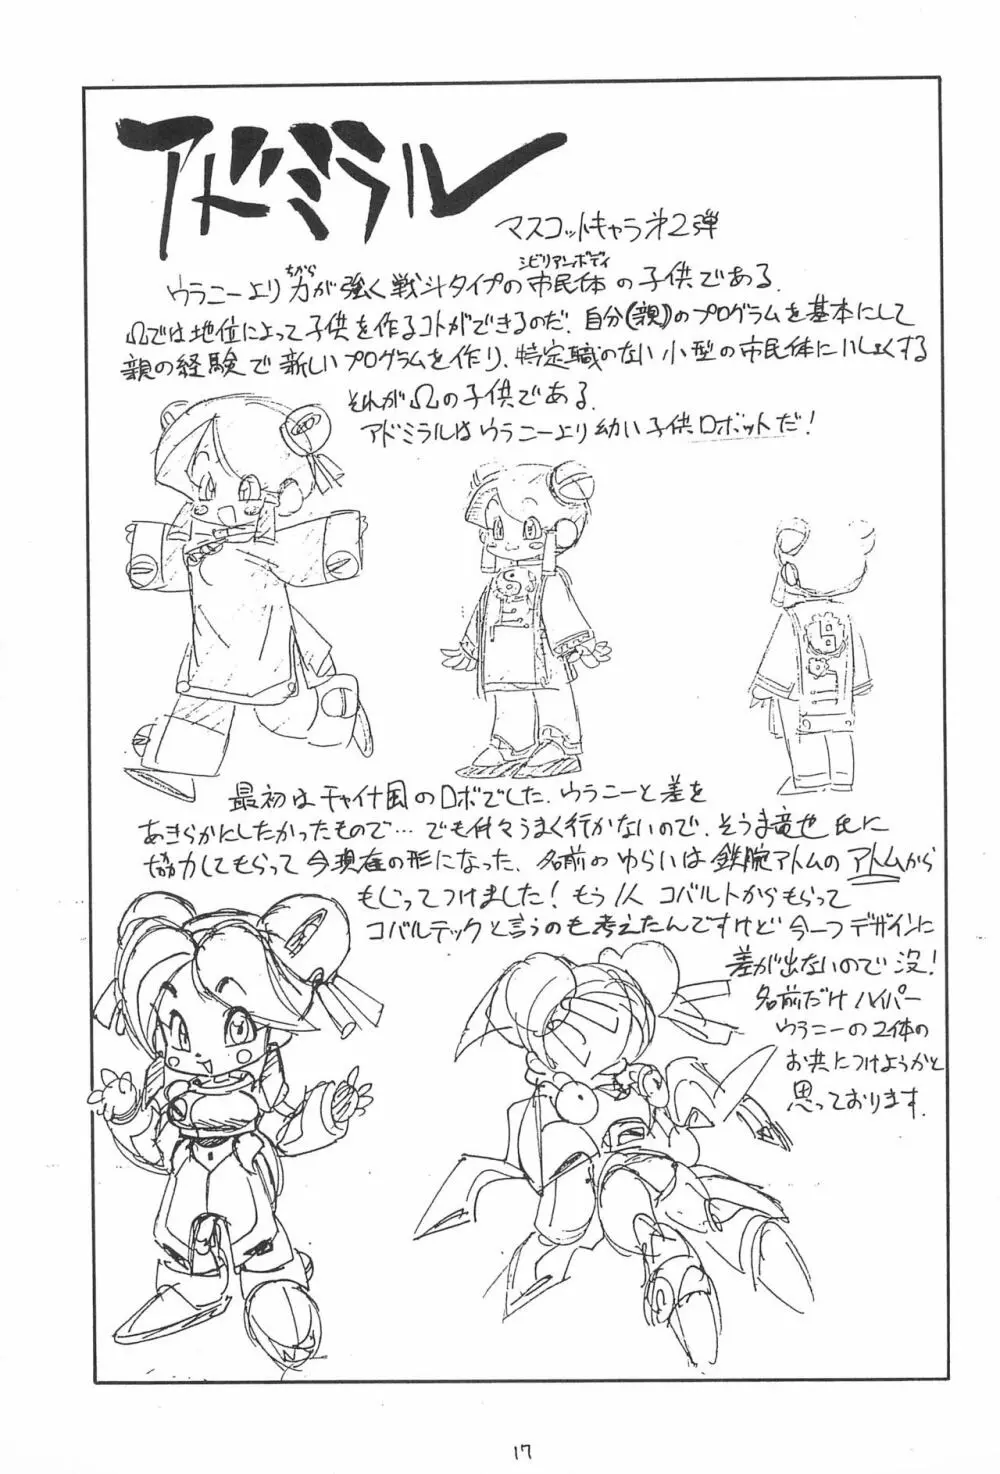 アドミラル
マスコットキャラ才2弾
ちから
シビリアンボディ
ウラニーより力が強く戦斗タイプの市民体の子供である.
Ωでは地位によって子供を作るコトができるのだ.自分(親)のプログラムを基本にして
親の経験で新しいプログラムを作り、特定職のない小型の市民体にいしょくする
それがΩの子供である.
アドミラルはウラニーより幼い子供ロボットだ!
最初はチャイナ風のロボでした.ウラニーと差を
あきらかにしたかったもので…でも仲々うまく行かないので、そうま竜也氏に
協力してもらって今現在の形になった、名前のゆらいは鉄腕アトムのアトムから
もじってつけました!もう1人コバルトからもらって
コバルテックと言うのも考えたんですけど今一つデザインに
差が出ないので没!
名前だけハイパー
ウラニーの2体の
お共につけようかと
思っております.
17